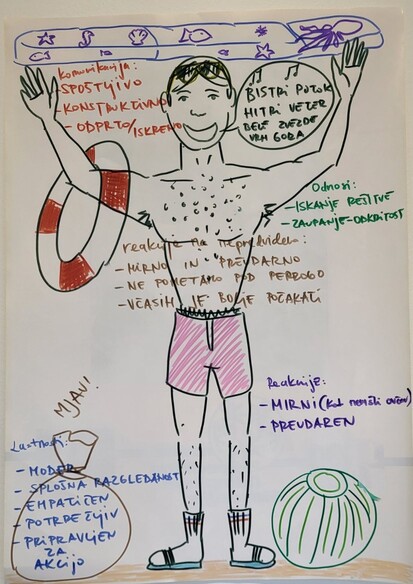 Komunikacija:
- SPOŠTLJIVO
- KONSTRUKTIVNO
- ODPRTO/ISKRENO
BISTRI POTOK
HITRI VETER
BELE ZVEZDE
VRH GORA
Odnosi:
- ISKANJE REŠITVE
- ZAUPANJE-ODKRITOST
reakcije na nepredvideno:
- MIRNO IN PREVDARNO
- NE POMETAMO POD PERPROGO
- VČASIH JE BOLJE POČAKATI
Reakcije:
- MIRNI (kot
- PREVDAREN
MJAV!
Lastnosti:
- MODER
- SPLOŠNA RAZGLEDANOST
- EMPATIČEN
- POTRPEŽLJIV
- PRIPRAVLJEN
ZA
AKCIJO